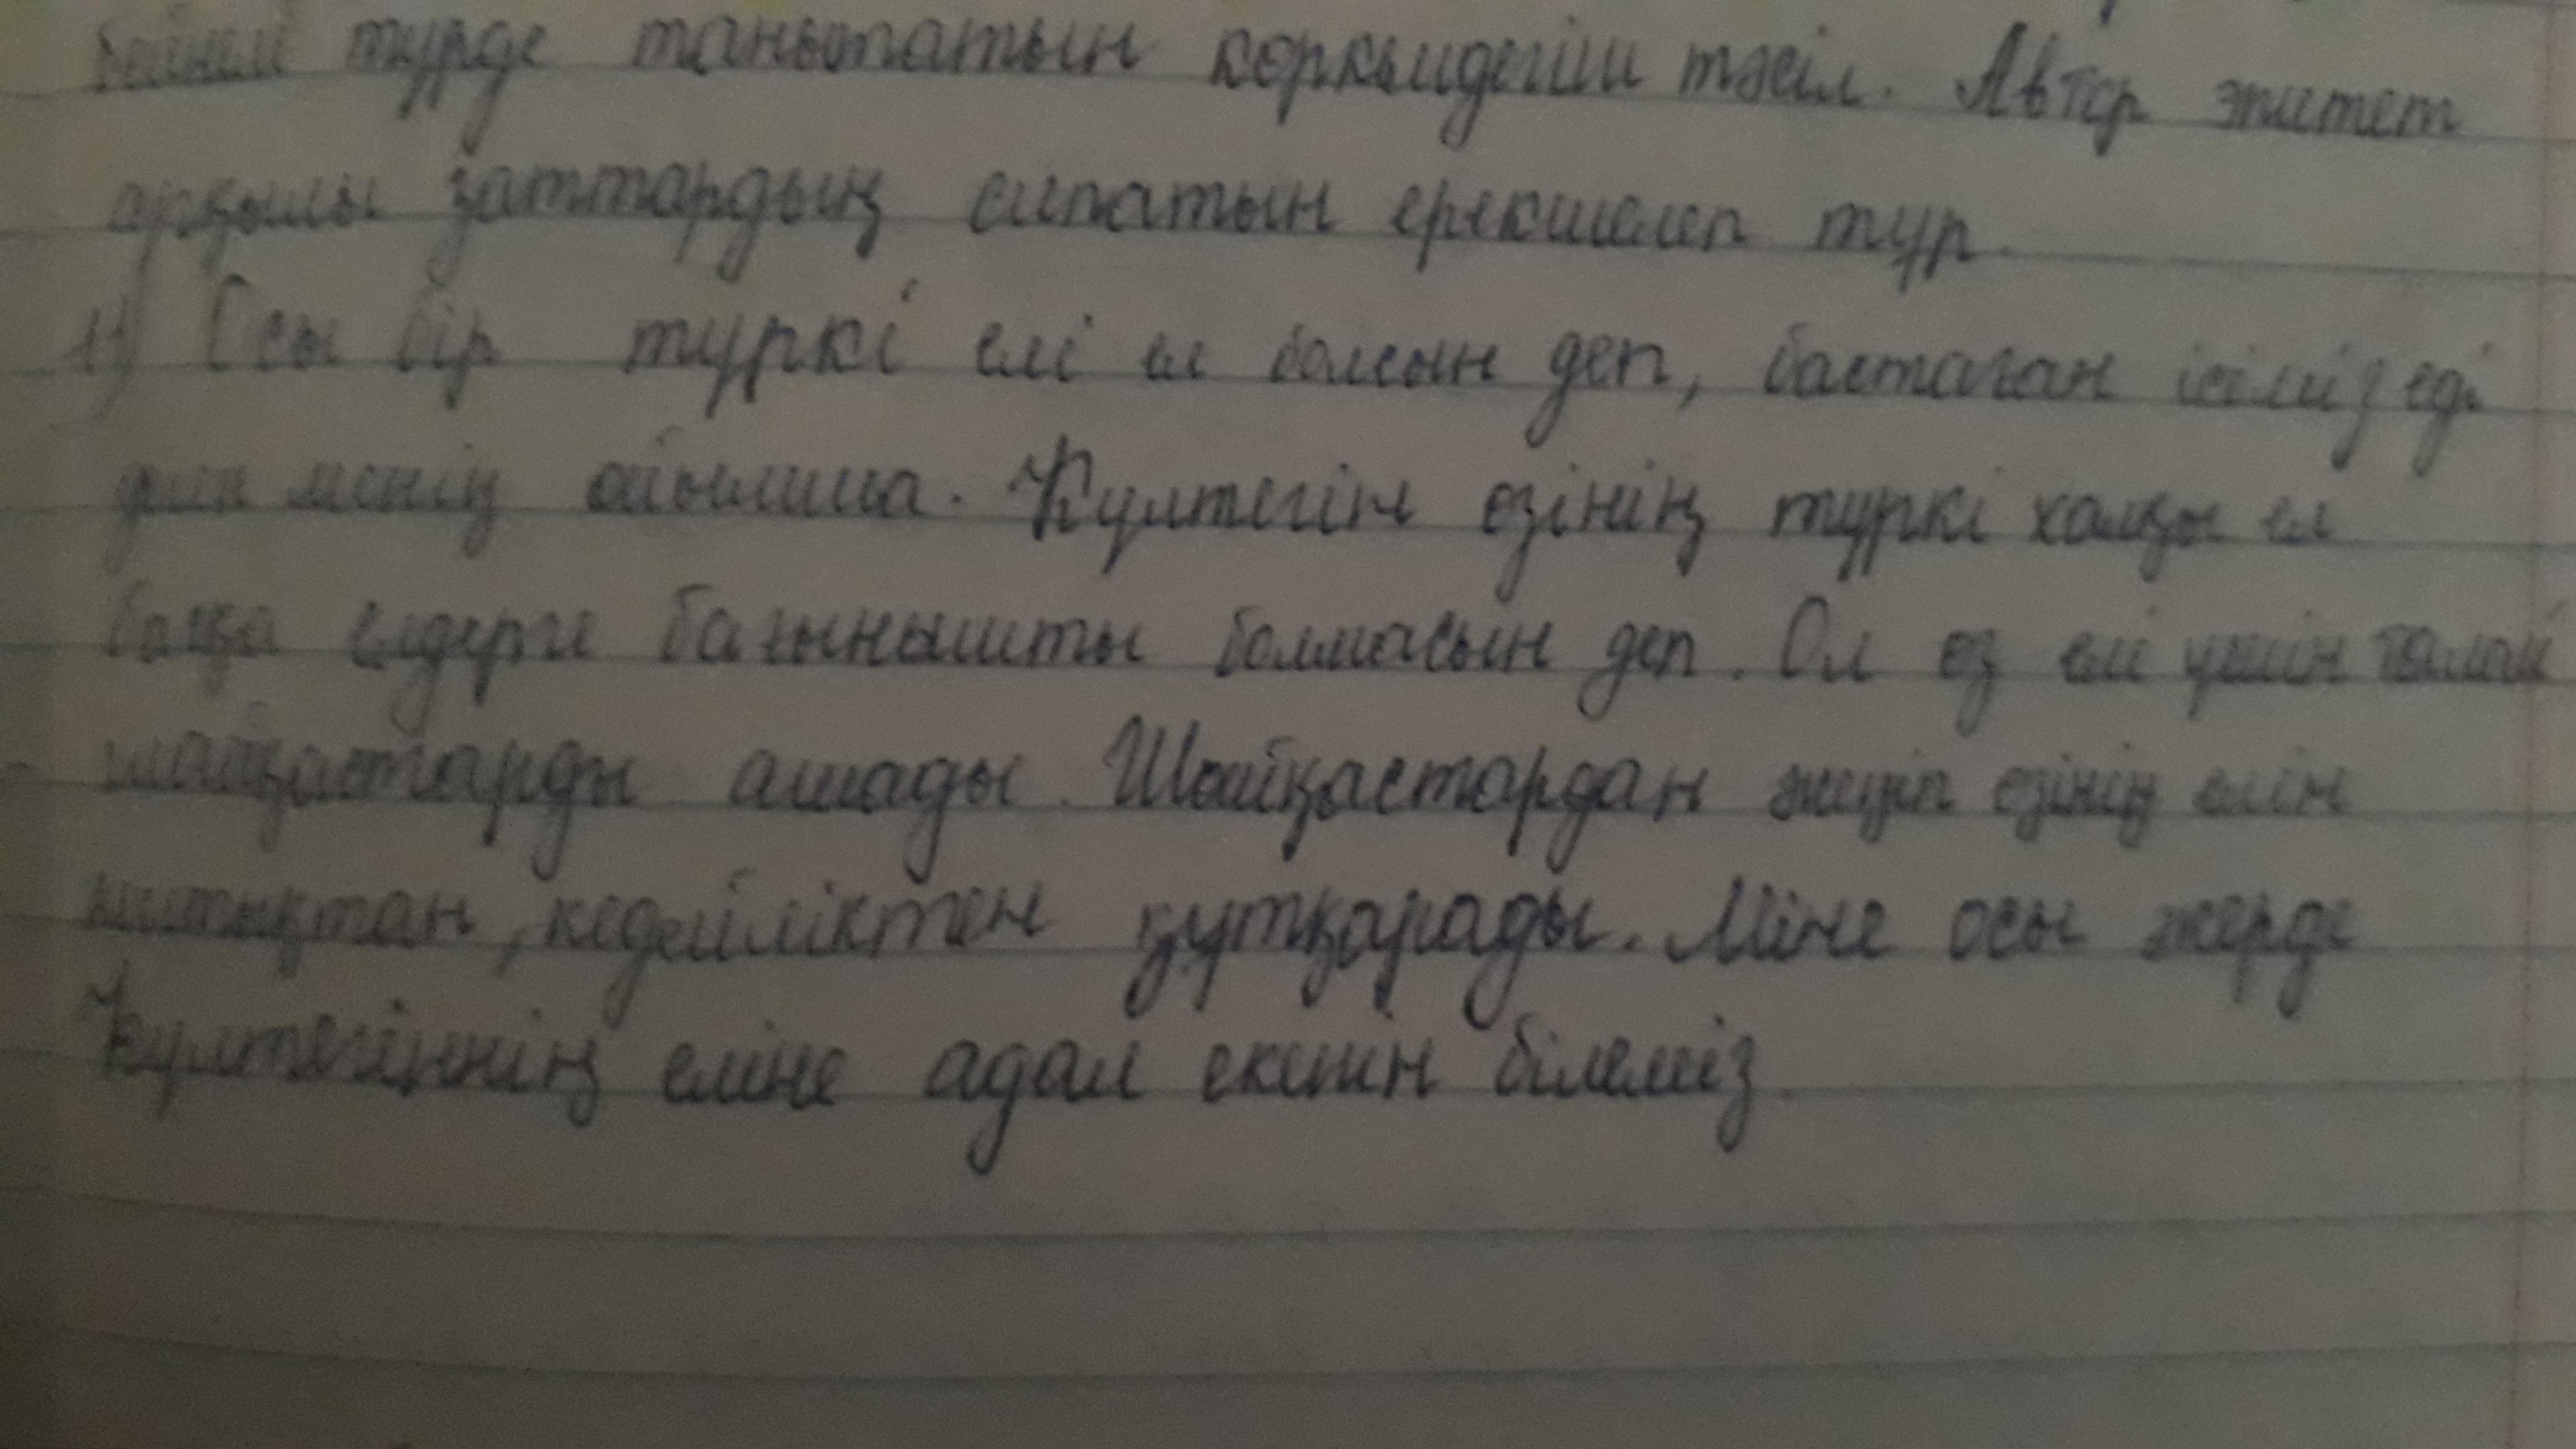 бейнелі түрде танытатын көркемдегіш тәсіл. Автор эпитет
арқылы заттардың сипатын ерекшелеп тұр.
11) Осы бір түркі елі ел болсын деп, бастаған ісіміз еді
деп менің ойымша. Күлтегін өзінің түркі халқы ел
басқа елдерге бағынышты болмасын деп. Ол өз елі үшін талай
шайқастарды ашады. Шайқастардан жеңіп өзінің елін
, кедейліктен құтқарады. Міне осы жерде
Күлтегіннің еліне адал екенін білеміз.